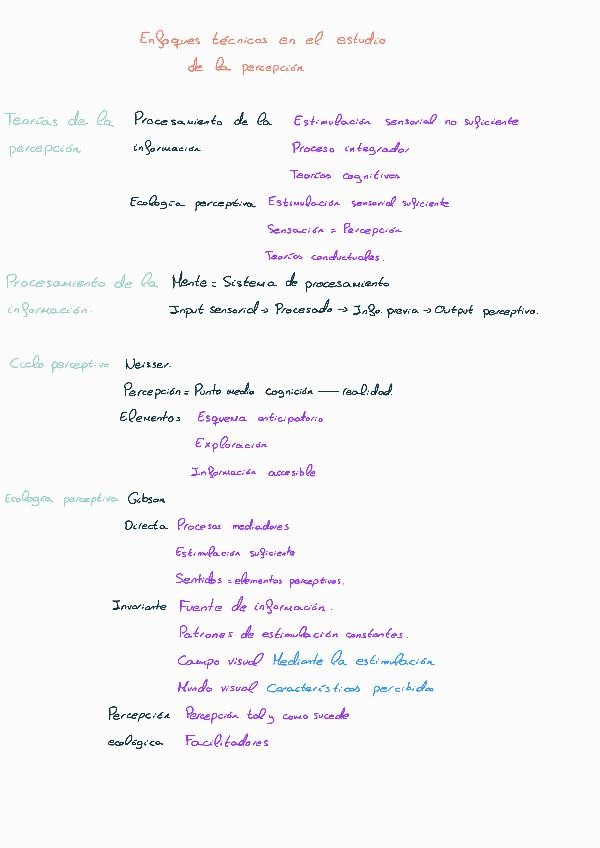 Enfoques técnicos en el estudio
de la percepción
Teorías de la percepción
Procesamiento de la información
Estimulación sensorial no suficiente
Proceso integrador
Teorías cognitivas
Ecología perceptiva Estimulación sensorial suficiente.
Sensación = Percepción
Teorías conductuales.
Procesamiento de la información.
Mente = Sistema de procesamiento
Input sensorial → Procesado → Info. previa → Output perceptivo.
Ciclo perceptivo Neisser.
Percepción = Punto medio cognición — realidad.
Elementos Esquema anticipatorio
Exploración
Información accesible
Ecología perceptiva Gibson
Directa Procesos mediadores
Estimulación suficiente
Sentidos = elementos perceptivos.
Invariante Fuente de información.
Patrones de estimulación constantes.
Campo visual Mediante la estimulación
Mundo visual Características percibidas
Percepción ecológica
Percepción tal y como sucede
Facilitadores